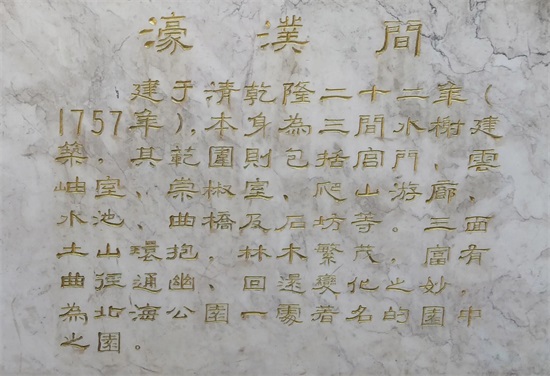 濠濮間
建于清乾隆二十二年（
1757年），本身為三間水榭建
築。其範圍則包括宫門、雲
岫室、崇椒室、爬山游廊、
水池、曲橋及石坊等。三面
土山環抱，林木繁茂，富有
曲徑通幽、回還變化之妙，
為北海公園一處著名的園中
之園。